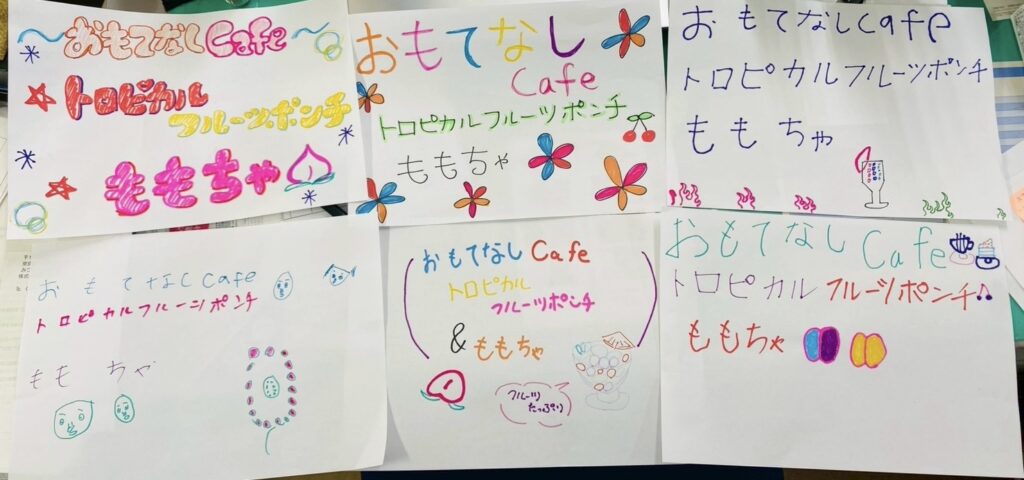 おもてなしCafe
トロピカル
フルーツポンチ
ももちゃ
おもてなし
Cafe
トロピカルフルーツポンチ
ももちゃ
おもてなしCafe
トロピカルフルーツポンチ
ももちゃ
おもてなしCafe
トロピカルフルーツポンチ
ももちゃ
おもてなしCafe
トロピカル
フルーツポンチ
&ももちゃ
フルーツ
たっぷり
おもてなしCafe
トロピカルフルーツポンチ
ももちゃ